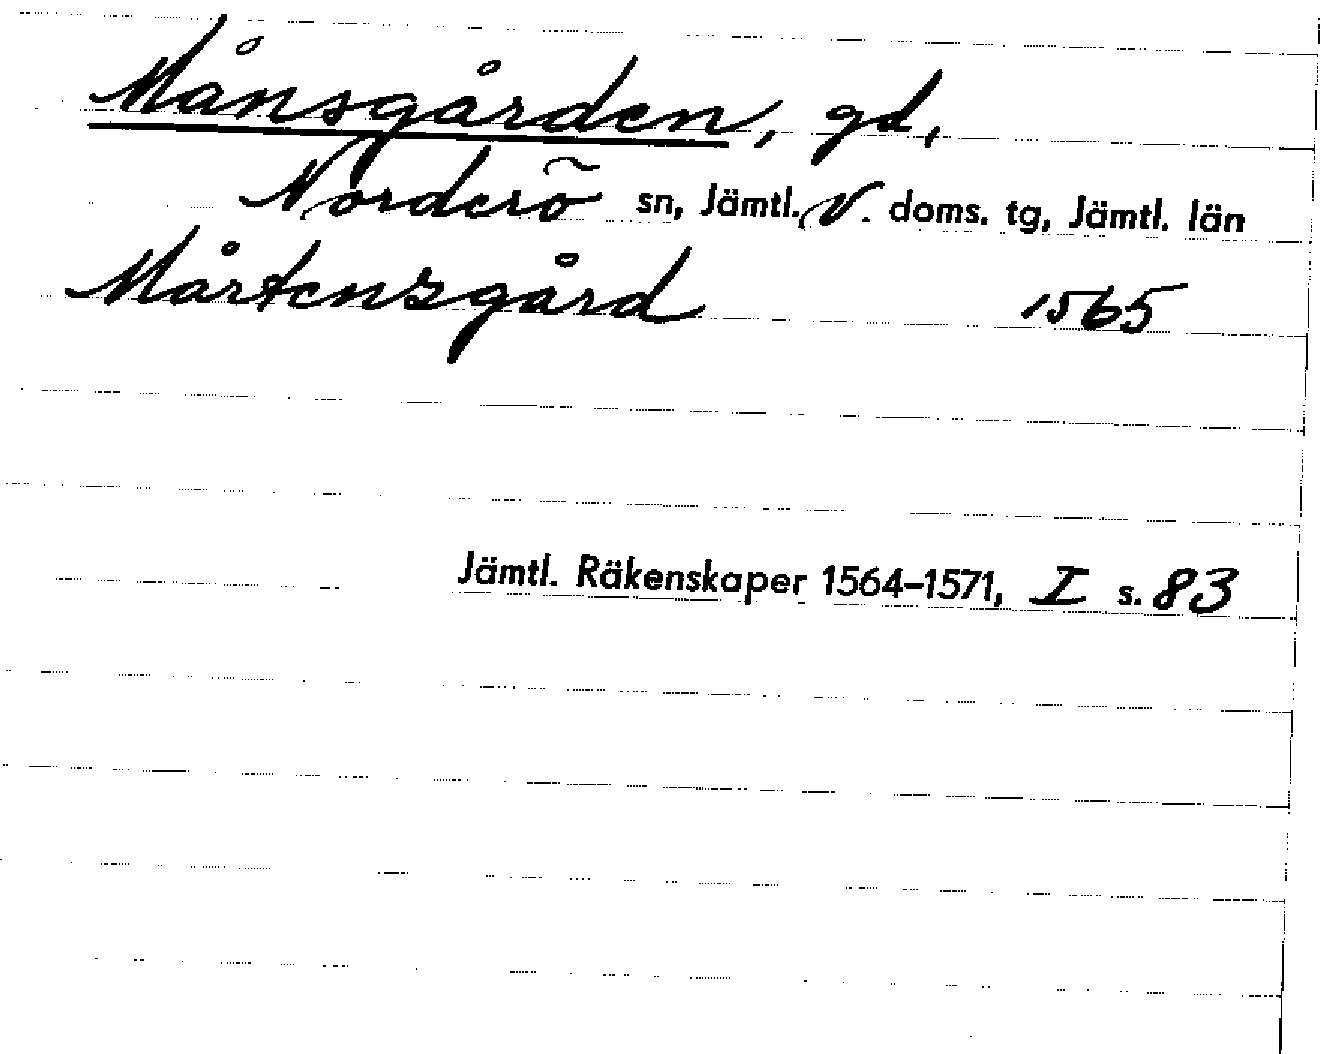 Månsgården, gd,
Norderö sn, Jämtl. V. doms. tg, Jämtl. län
Mårtensgård 1565
Jämtl. Räkenskaper 1564–1571, I s. 83